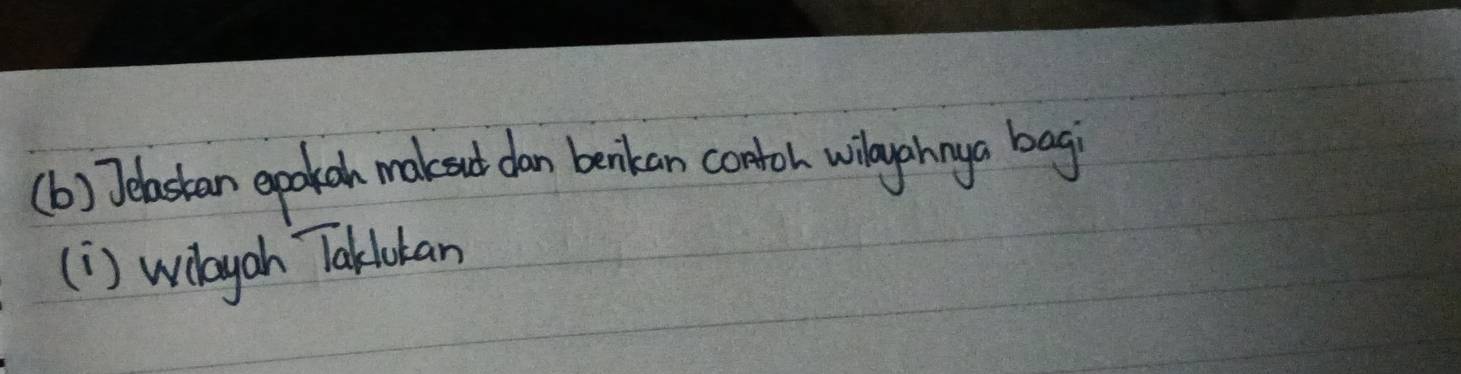 (b) Jelaskan apakah maksud dan berikan contoh wilayahnya bagi
(i) wilayah Taklukan